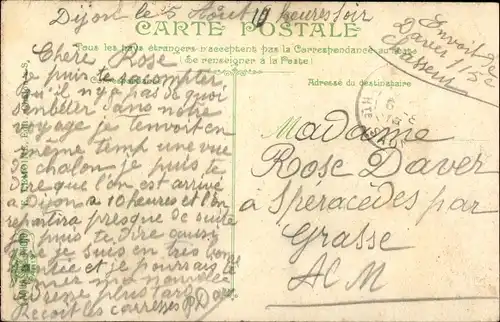 Dijon le 5 Août 10 heures soir
CARTE POSTALE
Tous les pays étrangers n'acceptent pas la Correspondance au recto
(Se renseigner à la Poste)
Envoi de
Daver
Chasseur
Correspondance
Chère Rose
je puis te raconter
qu'il n'y a pas de quoi
s'embêter dans notre
voyage je t'envoit en
même temp une vue
de chalon je puis te
dire que l'on est arrivé
a Dijon a 10 heures et l'on
repartira presque de suite
je puis te dire aussi
que je suis en très bonne
santée et je pourrais te
donner ma nouvelle
adresse plus tard
Recoit les caresses P. Daver
Adresse du destinataire
Madame
Rose Daver
a Spéracèdes par
Grasse
Al M